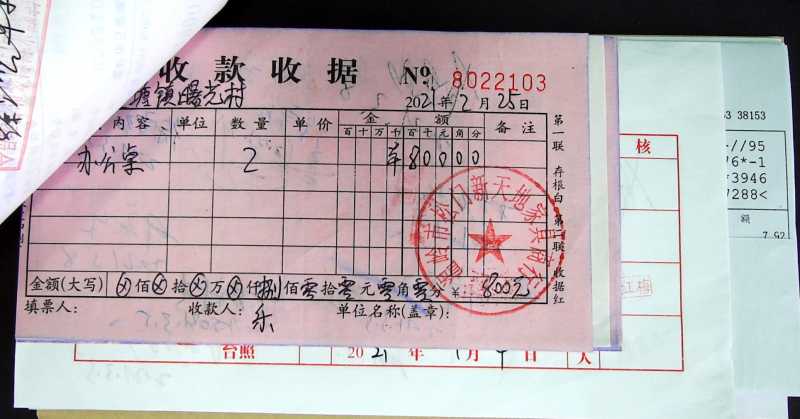 收款收据 № 8022103
塘镇曙光村 2021年2月25日
内容 单位 数量 单价 金额 备注
百 十 万 千 百 十 元 角 分
办公桌 2 ¥ 8 0 0 0 0
金额(大写) ⊗佰⊗拾⊗万⊗仟捌佰零拾零元零角零分 ¥: 800元
填票人: 收款人: 乐 单位名称(盖章):
第一联 存根白 第二联 收据红
温岭市松门新天地家具商行
53 38153
核
-//95
76*-1
*3946
7288<
额
7.92
江梅
台照 2021年1月 日 人